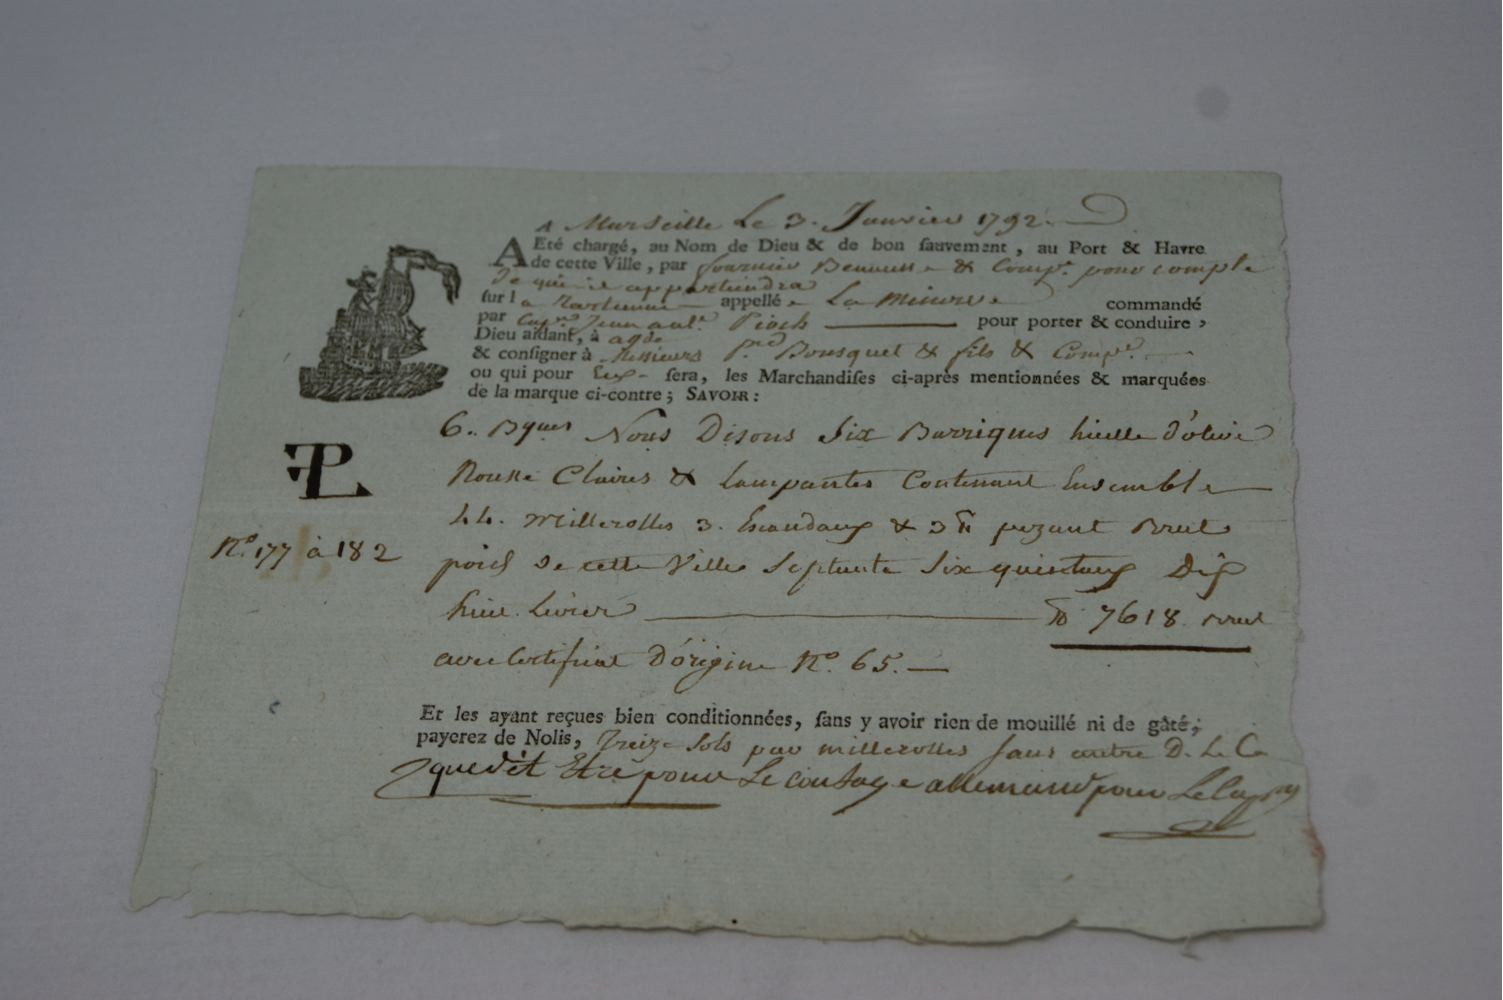 A Marseille Le 3. Janvier 1792.
A Eté chargé, au Nom de Dieu & de bon sauvement, au Port & Havre
de cette Ville, par fournier & Comp.e pour compte
de qui il appartiendra
sur la Tartanne appellée La Minerve commandé
par Cap.ne Jean ant.e Pioch pour porter & conduire,
Dieu aidant, à agde
& consigner à Messieurs P.re Bousquet & fils & Comp.e
ou qui pour Eux sera, les Marchandises ci-après mentionnées & marquées
de la marque ci-contre; SAVOIR:
6.. Bques Nous Disons Six Barriques huille d'olive
Rousse Claires & Lampantes Contenant Ensemble
44. Millerolles 3. Escandaux & 3 pezant Brut
N.o 177 à 182
poids de cette Ville Septante Six quintaux Dix
huit Livres 7618. Brut
avec Certificat D'origine N.o 65.
Et les ayant reçues bien conditionnées, sans y avoir rien de mouillé ni de gâté;
payerez de Nolis, Treize Sols par millerolles sans autre D. Le Ca
que dit Etre pour Le allemand pour Le Cap.ne